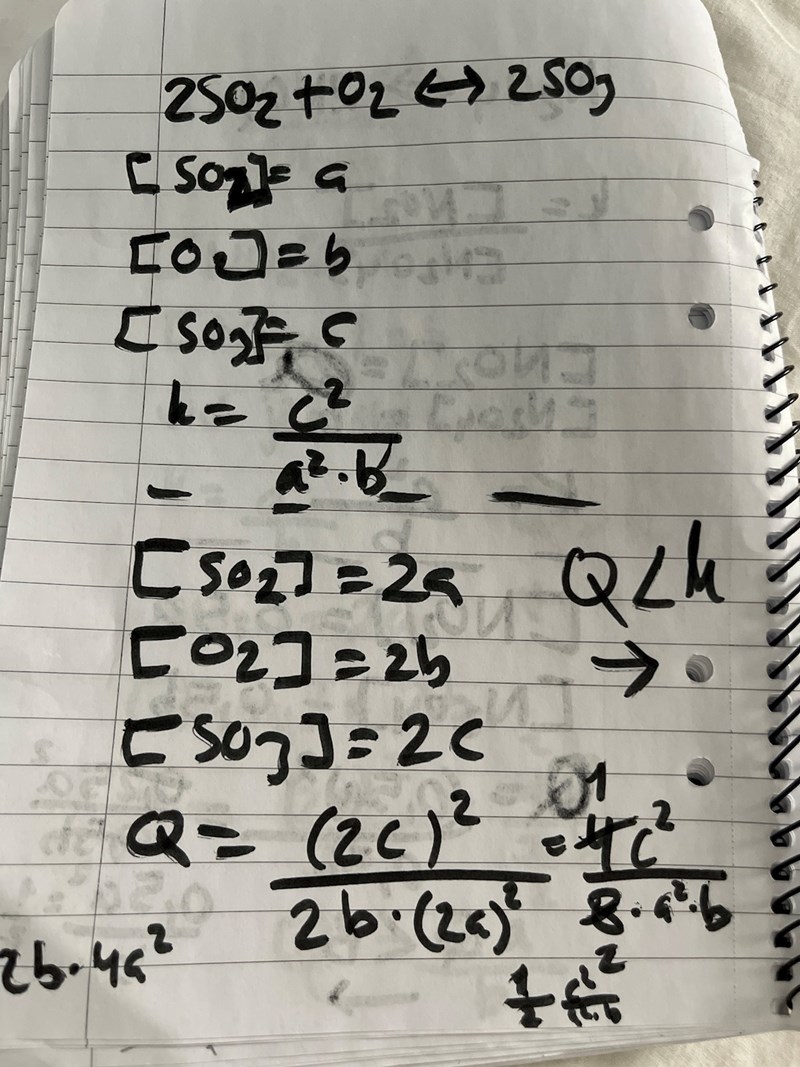 2SO₂ + O₂ ↔ 2SO₃
[SO₂] = a
[O₂] = b
[SO₃] = c
k = c² / a² · b
[SO₂] = 2a
Q < k
[O₂] = 2b
→
[SO₃] = 2c
Q = (2c)² / 2b · (2a)² = 1 4c² / 8 · a² · b
2b · 4a²
1/2 c² / a² · b